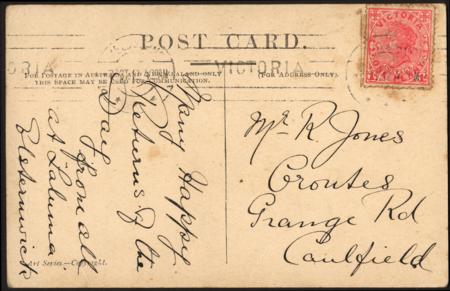 POST CARD.
VICTORIA
FOR POSTAGE IN AUSTRALIA AND NEW ZEALAND ONLY
THIS SPACE MAY BE USED FOR COMMUNICATION.
(FOR ADDRESS ONLY.)
VICTORIA
Many Happy
Returns of the
Day
from all
at
Elsternwick
Mr R Jones
Grange Rd
Caulfield
Art Series—Copyright.